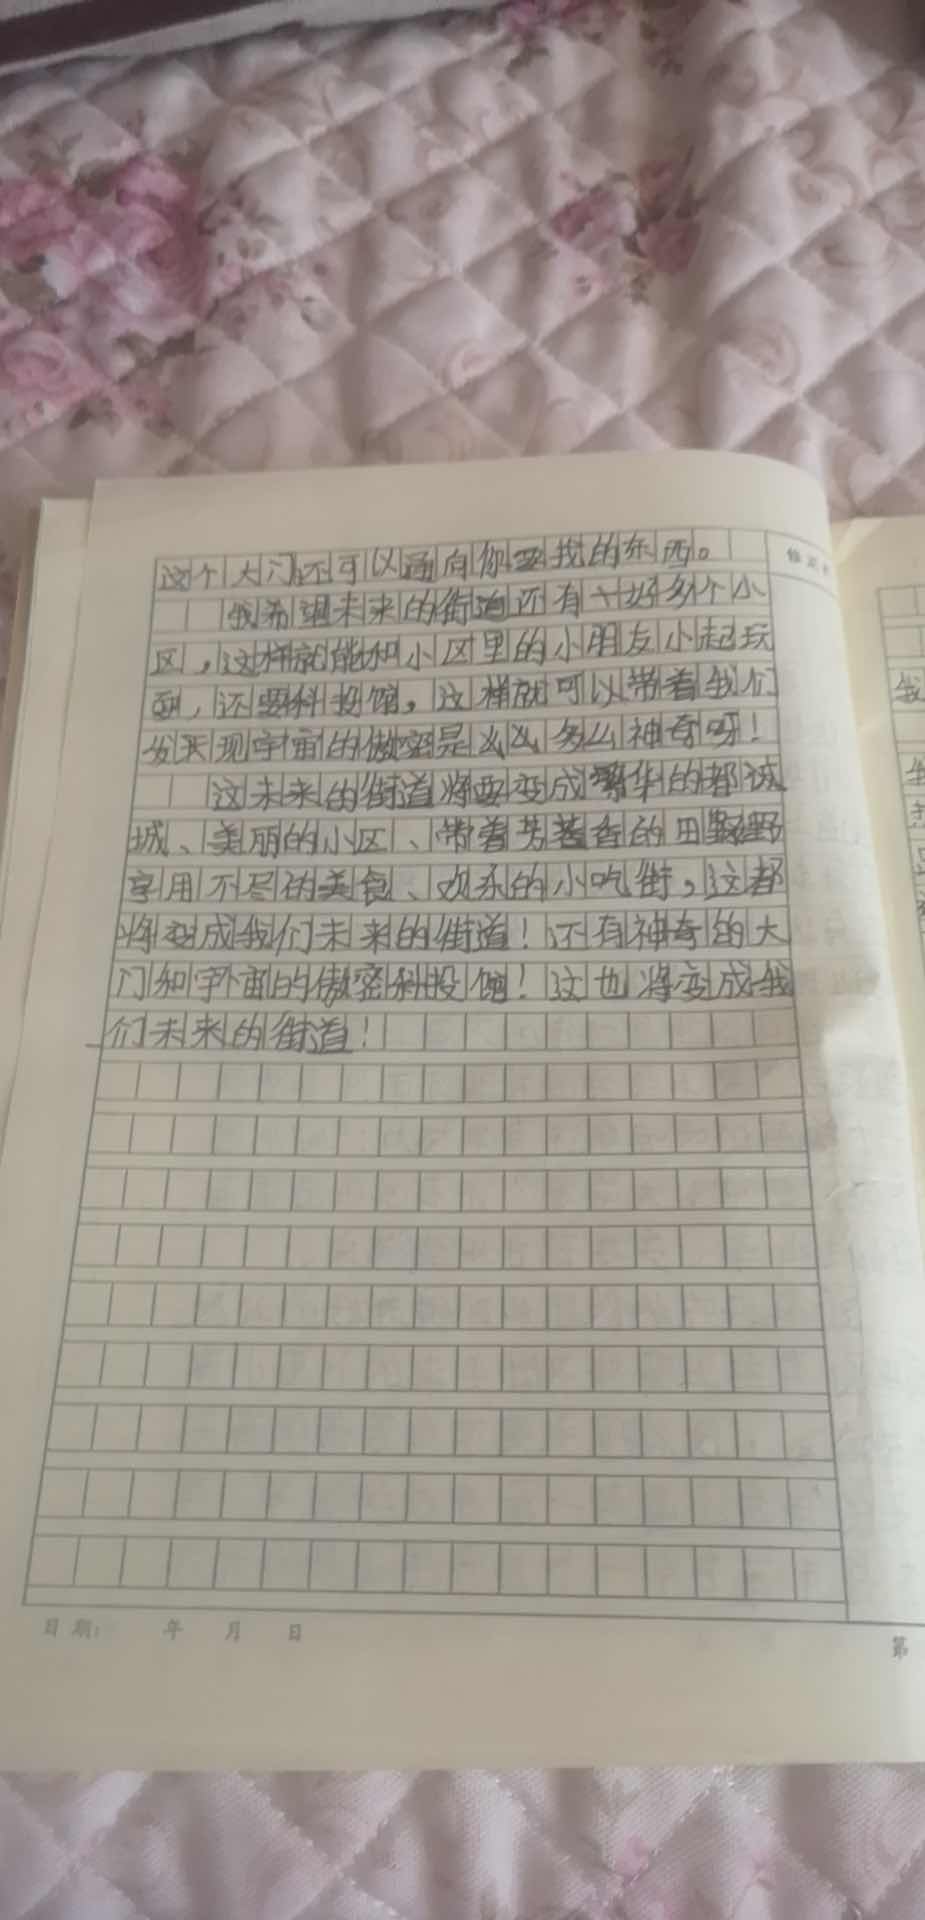 这个大门还可以通向你要找的东西。
我希望未来的街道还有好多个小
区，这样就能和小区里的小朋友小起玩
耍，还要科投馆，这样就可以带着我们
发天现宇宙的傲密是么么多么神奇呀！
这未来的街道将要变成繁华的都城
城、美丽的小区、带着芳香的田野
享用不尽的美食、欢乐的小吃街，这都
将变成我们未来的街道！还有神奇的大
门和宇宙的傲密科投馆！这也将变成我
们未来的街道！
日期： 年 月 日
第
我